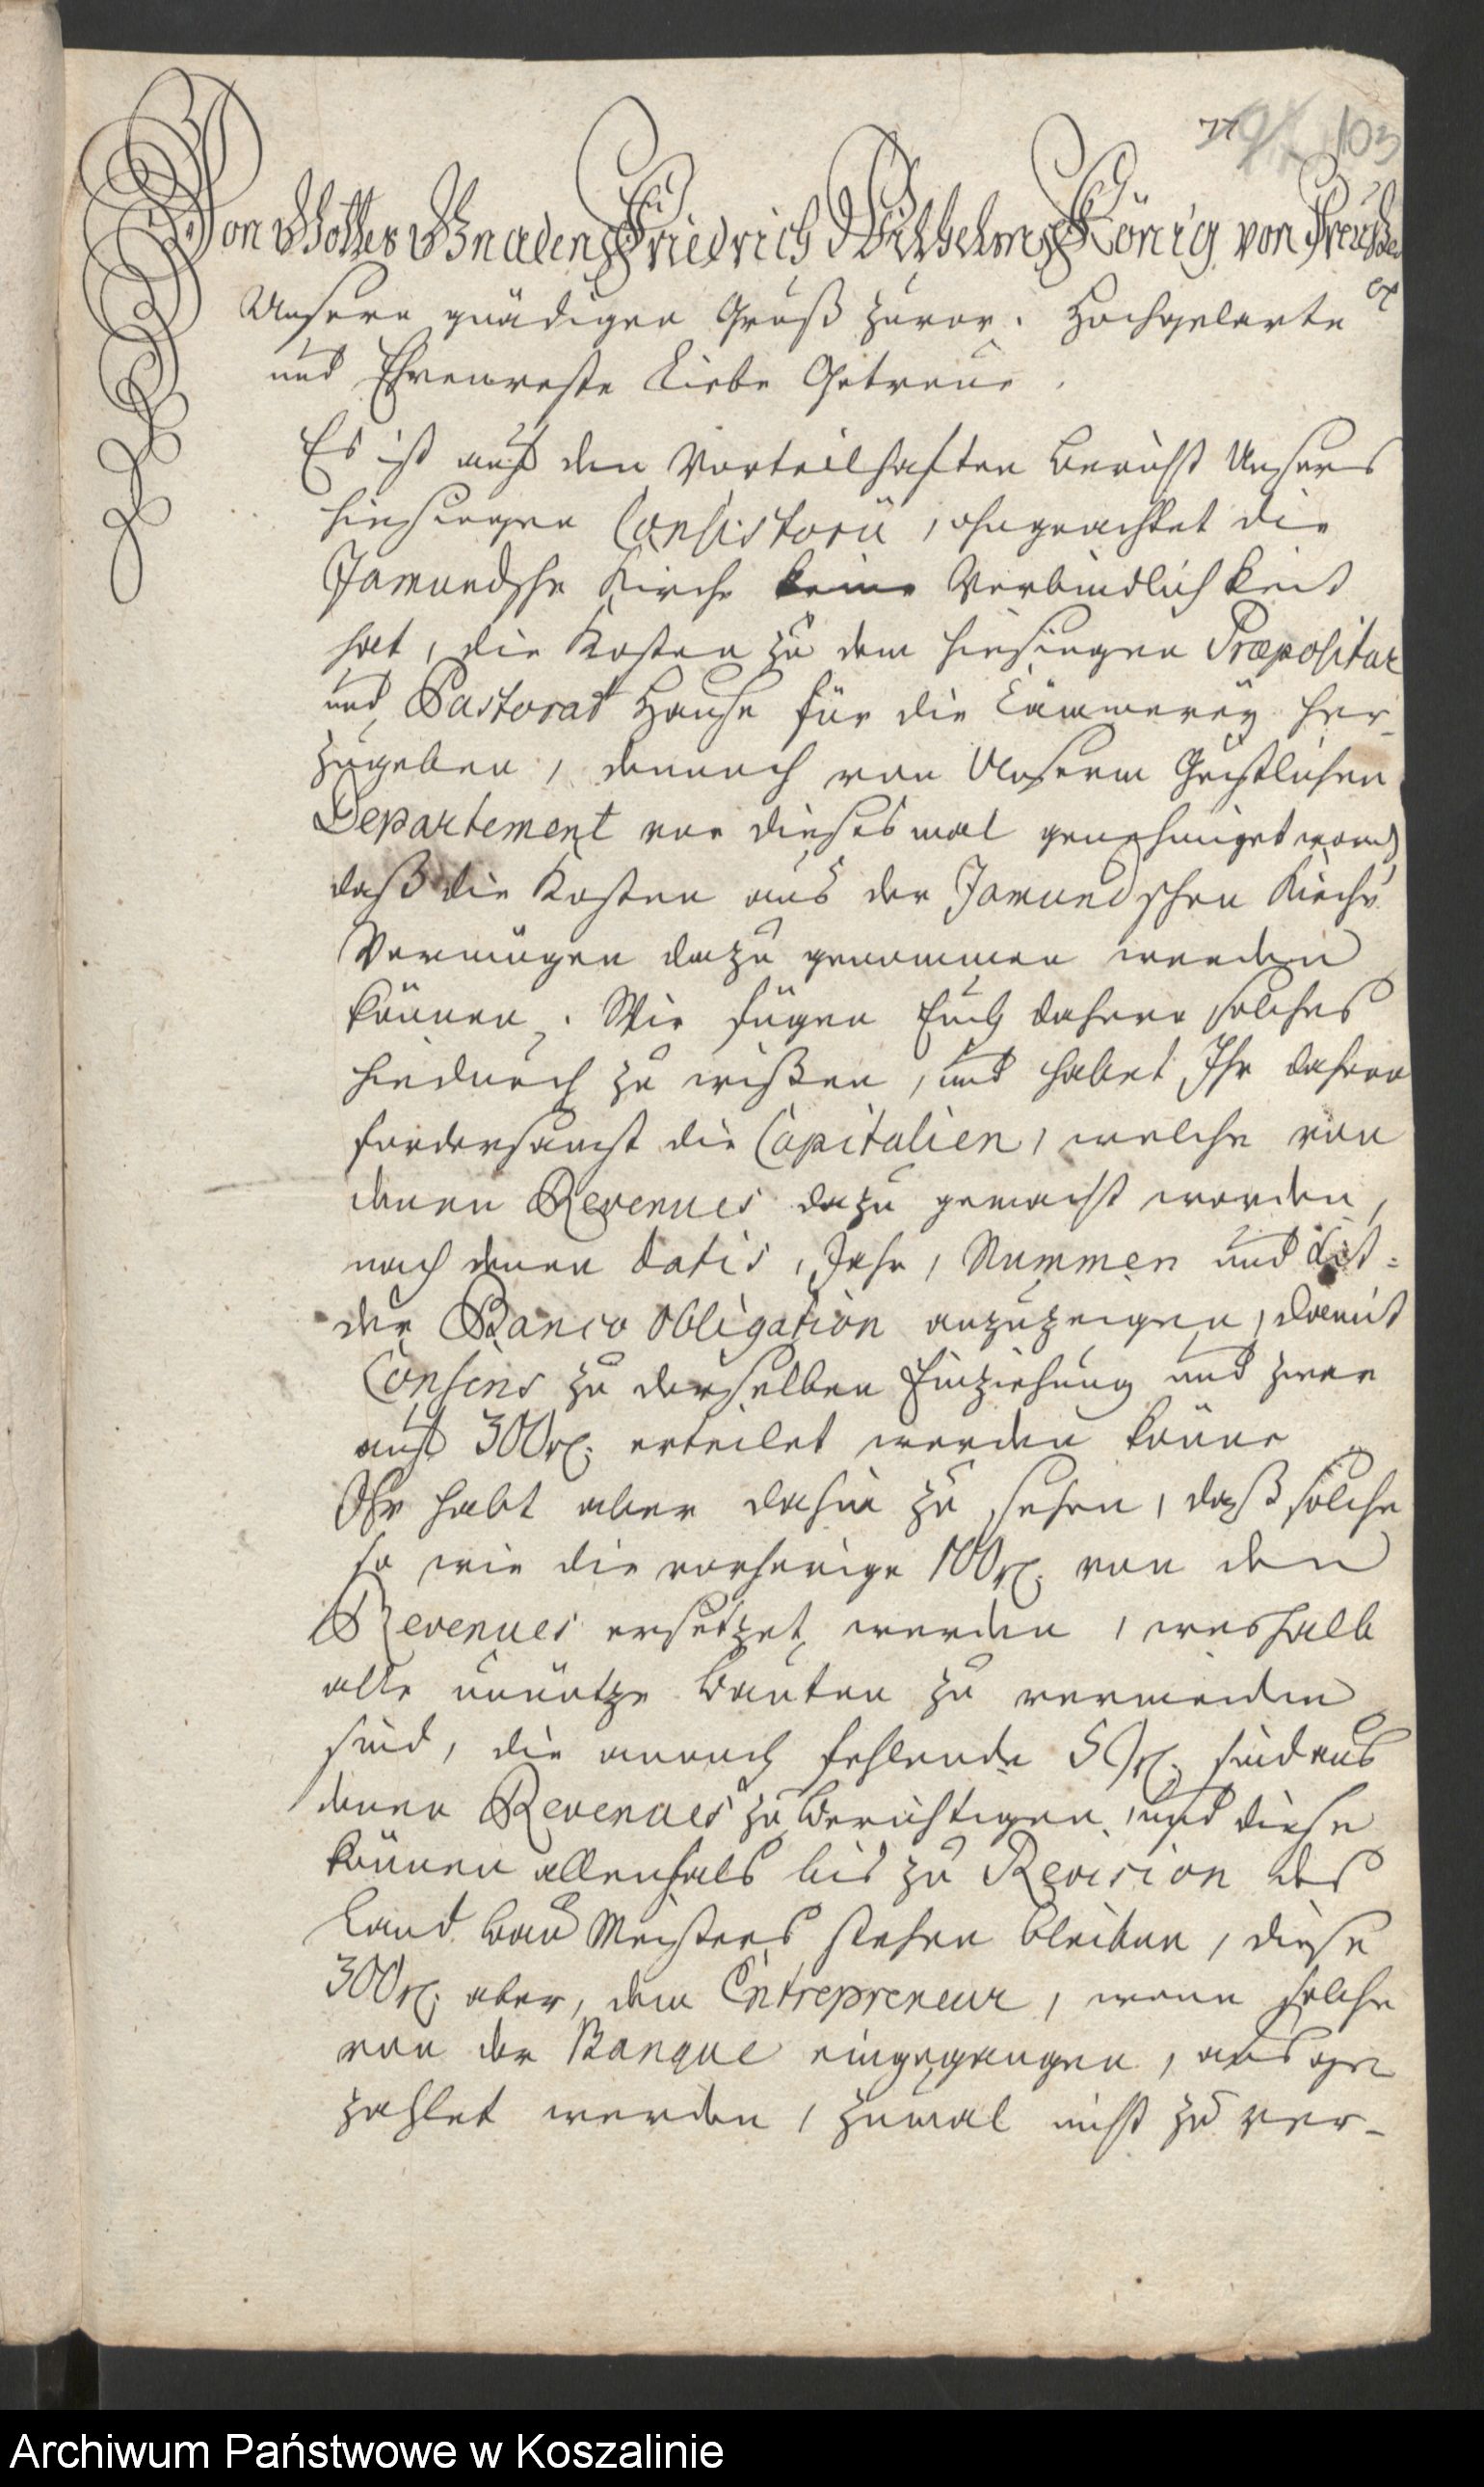 77 103
Von Gottes Gnaden Friedrich Wilhelm König von Preußen
Unsern gnädigen Gruß zuvor. Hochgelarte
und Ehrenveste Liebe Getreue.
Es ist auf den Vorteilhaften Bericht Unsers
hiesigen Consistorii, ohngeachtet die
Jamundsche Kirche keine Verbindlichkeit
hat, die Kosten zu dem hiesigen Præpositur
und Pastorat Hause für die Cämmerey her-
zugeben, dennoch von Unserm Geistlichen
Departement vor dieses mal genehmiget word
daß die Kosten aus der Jamundschen Kirche
Vermögen dazu genommen werden
können. Wir fügen Euch dahero solches
hiedurch zu wißen, und habet Ihr dahero
fordersamst die Capitalien, welche von
denen Revenues dazu gemacht worden,
nach denen Datis, Jahr, Nummen und Lit:
der Banco Obligation anzuzeigen, damit
Consens zu derselben Einziehung und zwar
auf 300 rt. erteilet werden könne
Ihr habt aber dahin zu sehen, daß solche
so wie die vorherige 100 rt. von den
Revenues ersetzet werden, weshalb
alle unnütze Bauten zu vermeiden
sind, die annoch fehlende 50 rt. sind aus
denen Revenues zu berichtigen, und diese
können allenfals bis zu Revision des
Land Bau Meisters stehen bleiben, diese
300 rt. aber, dem Entrepreneur, wenn solche
von der Banque eingegangen, ausge
zahlet werden, zumal nicht zu ver-
Archiwum Państwowe w Koszalinie